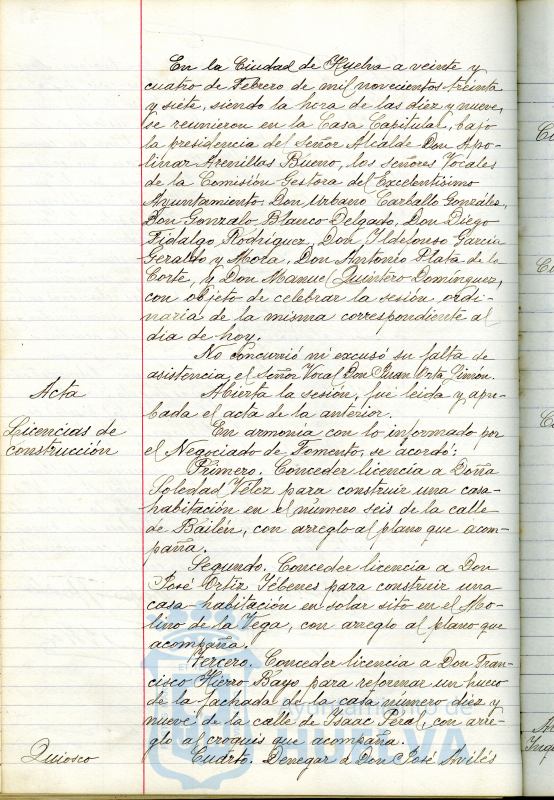 En la Ciudad de Huelva a veinte y
cuatro de Febrero de mil novecientos treinta
y siete, siendo la hora de las diez y nueve,
se reunieron en la Casa Capitular, bajo
la presidencia del señor Alcalde Don Apo-
linar Arenillas Bueno, los señores Vocales
de la Comisión Gestora del Excelentísimo
Ayuntamiento, Don Urbano Carballo González,
Don Gonzalo Blanco Delgado, Don Diego
Fidalgo Rodríguez, Don Ildefonso García
Geraldo y Mora, Don Antonio Plata de la
Corte, y Don Manuel Quintero Domínguez,
con objeto de celebrar la sesión ordi-
naria de la misma correspondiente al
dia de hoy.
No concurrió ni excusó su falta de
asistencia, el señor Vocal Don Juan Orta Limón.
Acta
Abierta la sesión, fue leida y apro-
bada el acta de la anterior.
Licencias de
construcción
En armonía con lo informado por
el Negociado de Fomento, se acordó:
Primero. Conceder licencia a Doña
Soledad Vélez para construir una casa-
habitación en el número seis de la calle
de Bailén, con arreglo al plano que acom-
paña.
Segundo. Conceder licencia a Don
José Ortiz Yébenes para construir una
casa-habitación en solar sito en el Mo-
lino de la Vega, con arreglo al plano que
acompaña.
Tercero. Conceder licencia a Don Fran-
cisco Hierro Bayo para reformar un hueco
de la fachada de la casa número diez y
nueve de la calle de Isaac Peral, con arre-
glo al croquis que acompaña.
Quiosco
Cuarto. Denegar a Don José Avilés